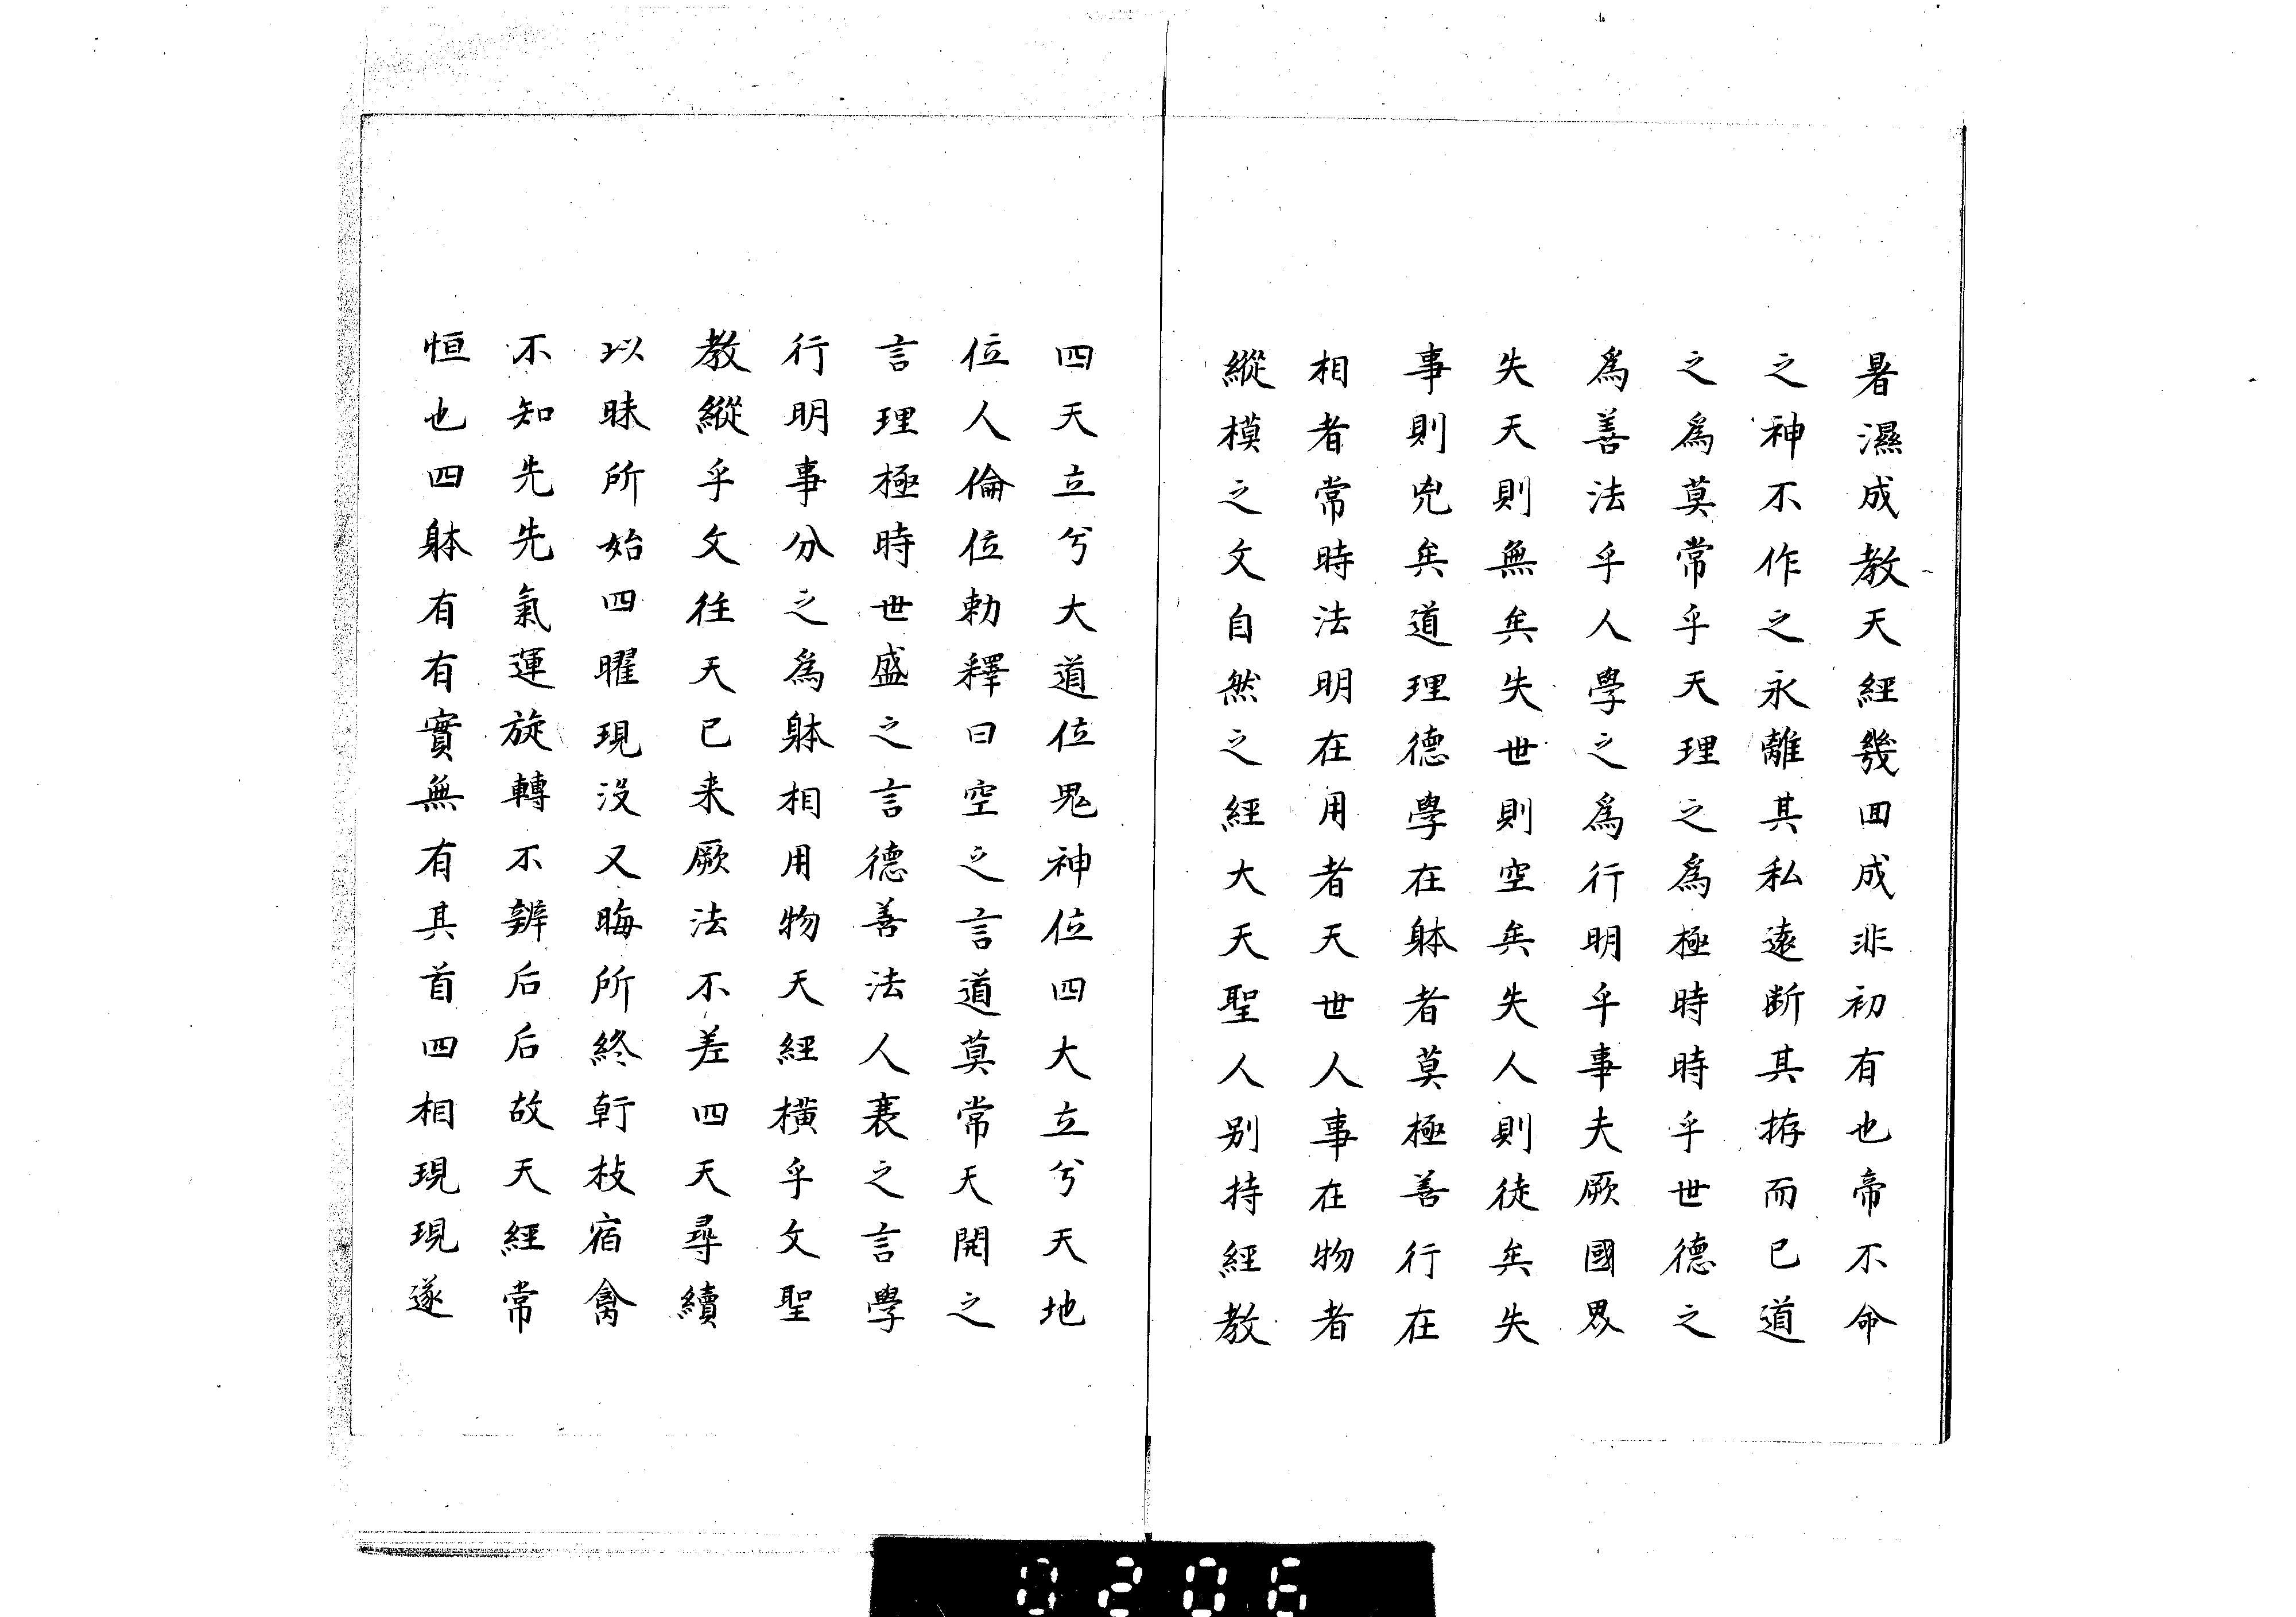 暑濕成教天經幾回成非初有也帝不命
之神不作之永離其私遠断其拵而已道
之為莫常乎天理之為極時時乎世德之
為善法乎人學之為行明乎事夫厥國界
失天則無矣失世則空矣失人則徒矣失
事則兇矣道理德學在躰者莫極善行在
相者常時法明在用者天世人事在物者
縱模之文自然之經大天聖人別持經教
四天立兮大道位鬼神位四大立兮天地
位人倫位勅釋曰空之言道莫常天開之
言理極時世盛之言德善法人裹之言學
行明事分之為躰相用物天經橫乎文聖
教縱乎文徃天已来厥法不差四天尋續
以昧所始四曜現没又晦所終斡枝宿禽
不知先先氣運旋轉不辨后后故天經常
恒也四躰有有實無有其首四相現現遂
0206